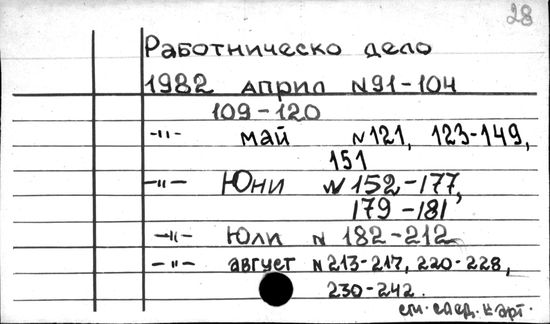 28
Работническо дело
1982 април N91-104
109-120
-"- май N121, 123-149,
151
-"- Юни N 152-177,
179-181,
-"- Юли N 182-212
-"- август N213-217, 220-228,
230-242.
см. след. карт.